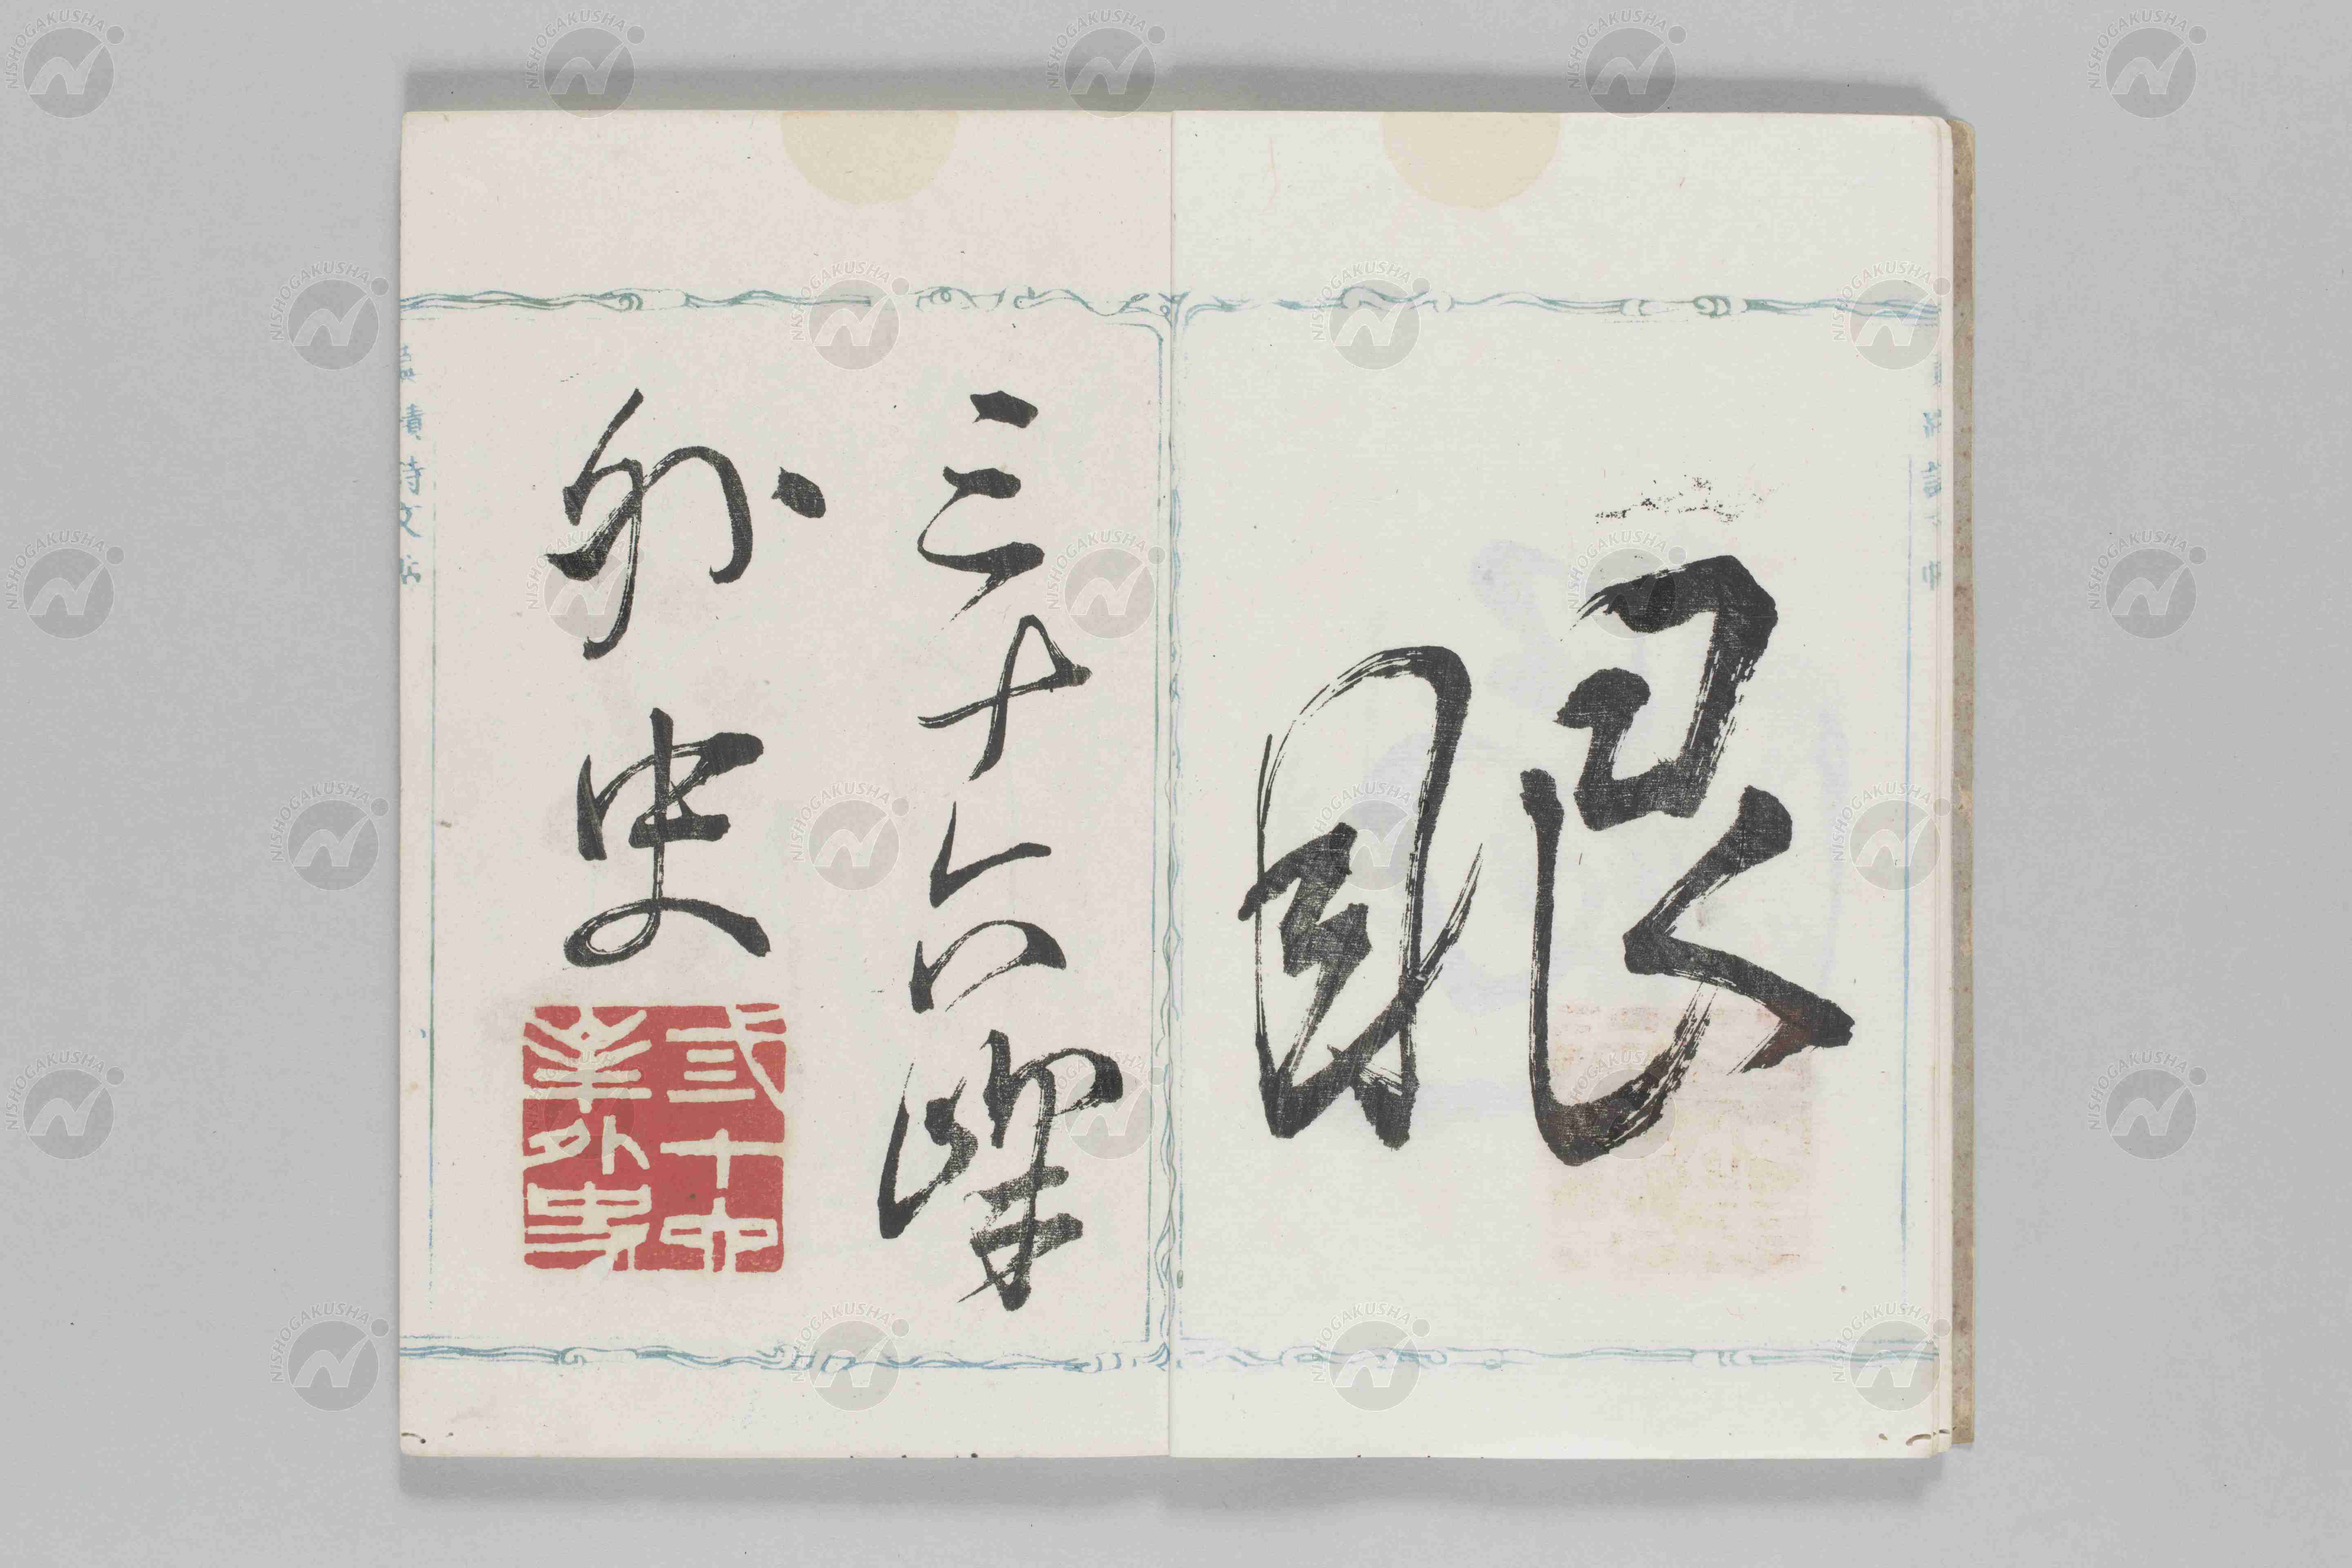 眼
三十六峰
外史
弎十六
峯外史
詩文
NISHOGAKUSHA